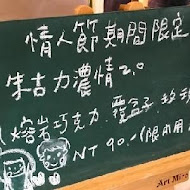 情人節期間限定
朱古力濃情2.0
熔岩巧克力.覆盆子
NT 90.-(限內用
Art Mi